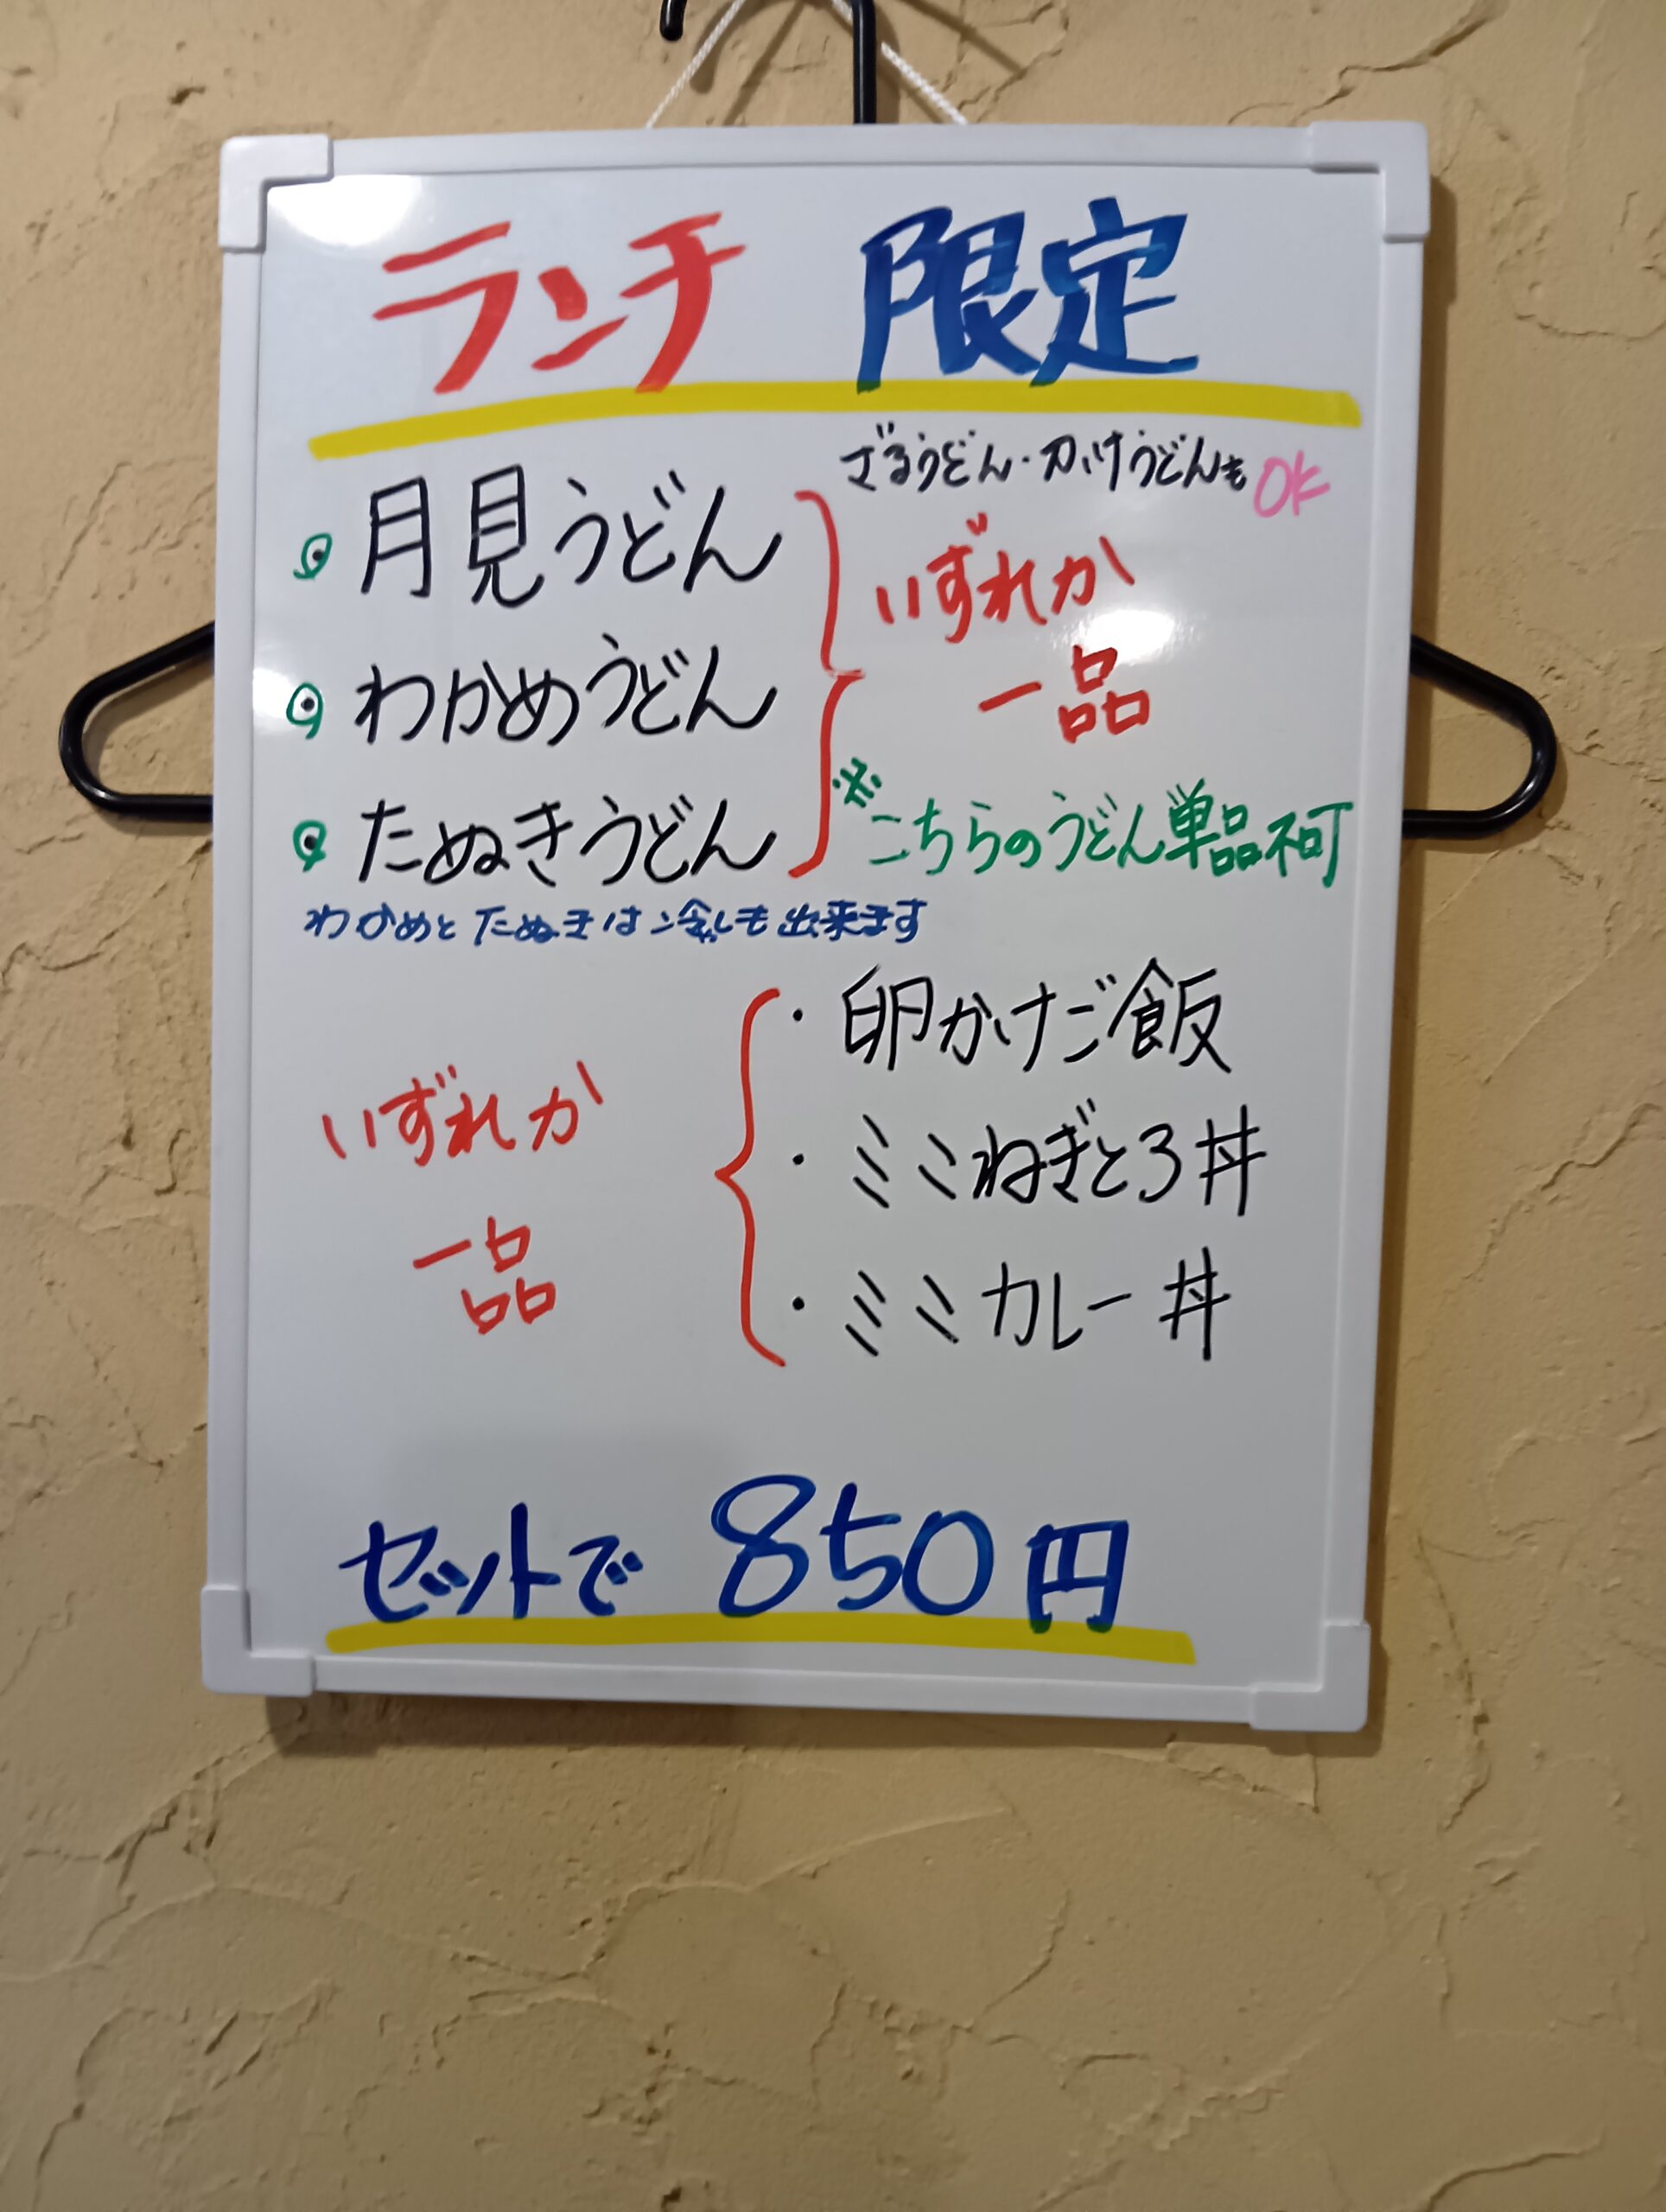 ランチ 限定
ざるうどん・かけうどんもOK
・月見うどん
・わかめうどん
・たぬきうどん
いずれか
一品
※こちらのうどん単品不可
わかめとたぬきは冷しも出来ます
いずれか
一品
・卵かけご飯
・ミニねぎとろ丼
・ミニカレー丼
セットで 850円